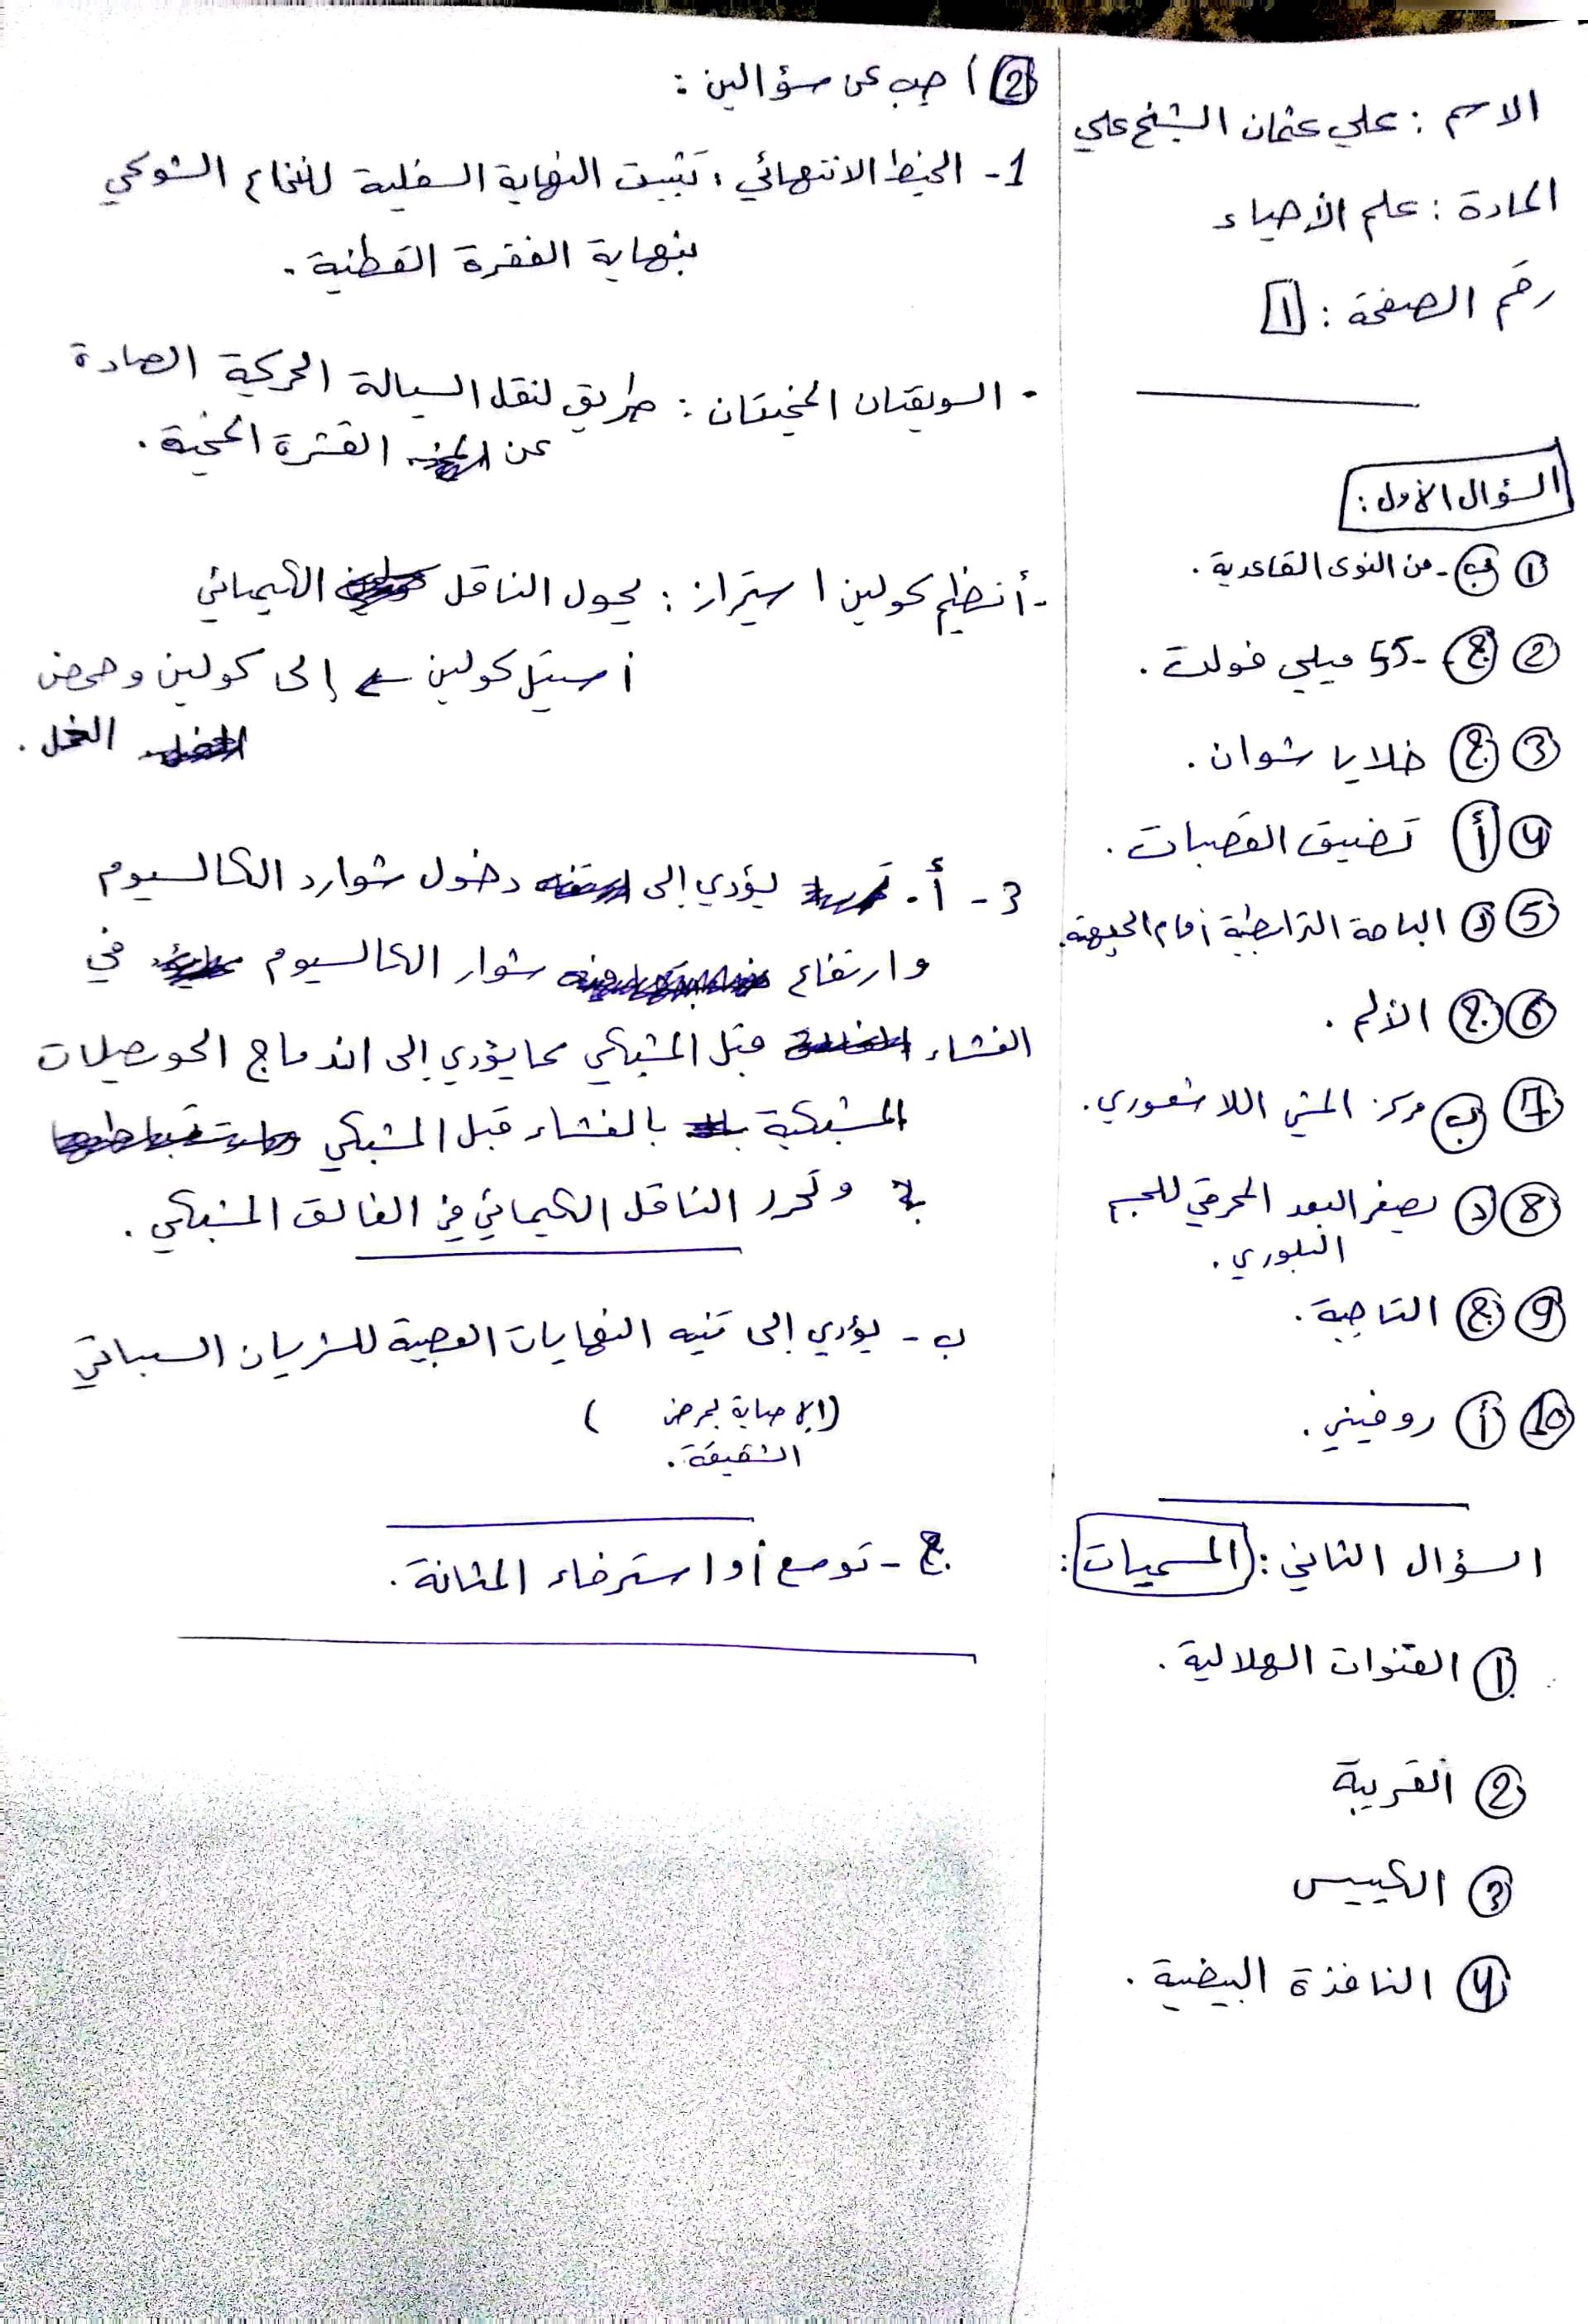 الاسم : علي عثمان الشيخ علي
المادة : علم الأحياء
رقم الصفحة : 1
السؤال الأول :
1 ب - من النوى القاعدية .
2 ج - 55- ميلي فولت .
3 ج خلايا شوان .
4 أ تضيق القصبات .
5 د الباحة الترابطية أمام الجبهية .
6 ج الألم .
7 ب مركز المشي اللاشعوري .
8 د يصغر البعد المحرقي للجسم
البلوري .
9 ج التاجية .
10 أ روفيني .
السؤال الثاني : المسميات :
1 القنوات الهلالية .
2 القريبة
3 الكييس
4 النافذة البيضية .
2 ) اجب عن سؤالين :
1 - الخيط الانتهائي : تثبيت النهاية السفلية للنخاع الشوكي
بنهاية الفقرة القطنية .
• السويقتان المخيتان : طريق لنقل السيالة الحركية الصادة
عن القشرة المخية .
- أنظيم كولين استيراز : يحول الناقل الكيميائي
أستيل كولين ← إلى كولين وحمض
الخل .
3 - أ . يؤدي إلى دخول شوارد الكالسيوم
وارتفاع شوار الكالسيوم في
الغشاء قبل المشبكي مما يؤدي إلى اندماج الحويصلات
المشبكية بالغشاء قبل المشبكي
وتحرر الناقل الكيميائي في الفالق المشبكي .
ب - يؤدي إلى تنبه النهايات العصبية للشريان السباتي
( الإصابة بمرض )
الشقيقة .
ج - توسع أو استرخاء المثانة .